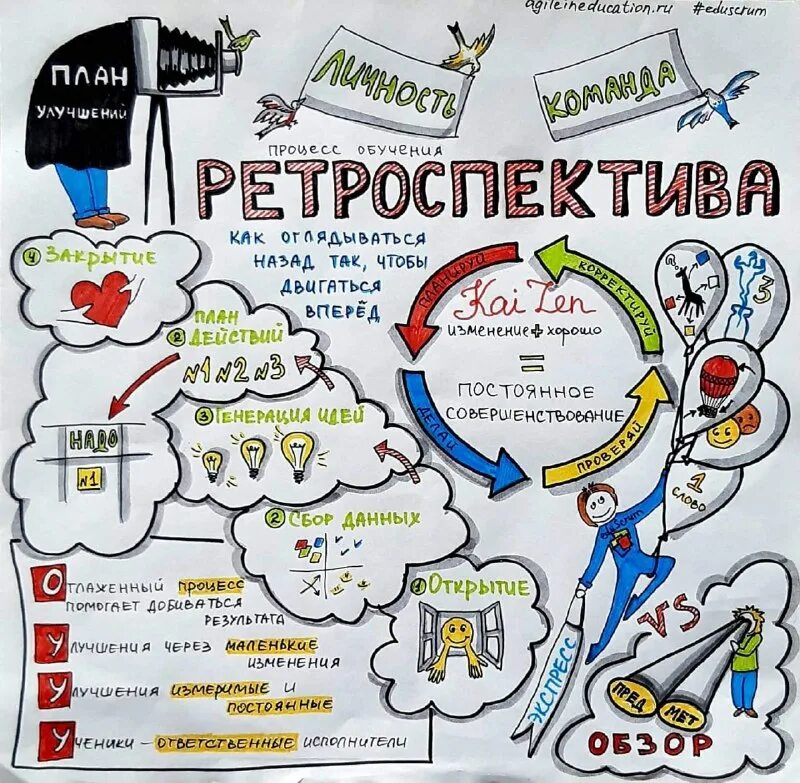 agileineducation.ru #eduscrum
ПЛАН
УЛУЧШЕНИЙ
ЛИЧНОСТЬ
КОМАНДА
ПРОЦЕСС ОБУЧЕНИЯ
РЕТРОСПЕКТИВА
КАК ОГЛЯДЫВАТЬСЯ
НАЗАД ТАК, ЧТОБЫ
ДВИГАТЬСЯ
ВПЕРЁД
ПЛАНИРУЙ
КОРРЕКТИРУЙ
KaiZen
ИЗМЕНЕНИЕ + ХОРОШО
=
ПОСТОЯННОЕ
СОВЕРШЕНСТВОВАНИЕ
ДЕЛАЙ
ПРОВЕРЯЙ
3
1
СЛОВО
eduScrum
ЭКСПРЕСС
VS
ПРЕД
МЕТ
ОБЗОР
4 ЗАКРЫТИЕ
2 ПЛАН
ДЕЙСТВИЙ
№1 №2 №3
НАДО
№1
3 ГЕНЕРАЦИЯ ИДЕЙ
2 СБОР ДАННЫХ
1 ОТКРЫТИЕ
ОТЛАЖЕННЫЙ ПРОЦЕСС
ПОМОГАЕТ ДОБИВАТЬСЯ
РЕЗУЛЬТАТА
УЛУЧШЕНИЯ ЧЕРЕЗ МАЛЕНЬКИЕ
ИЗМЕНЕНИЯ
УЛУЧШЕНИЯ ИЗМЕРИМЫЕ И
ПОСТОЯННЫЕ
УЧЕНИКИ – ОТВЕТСТВЕННЫЕ ИСПОЛНИТЕЛИ